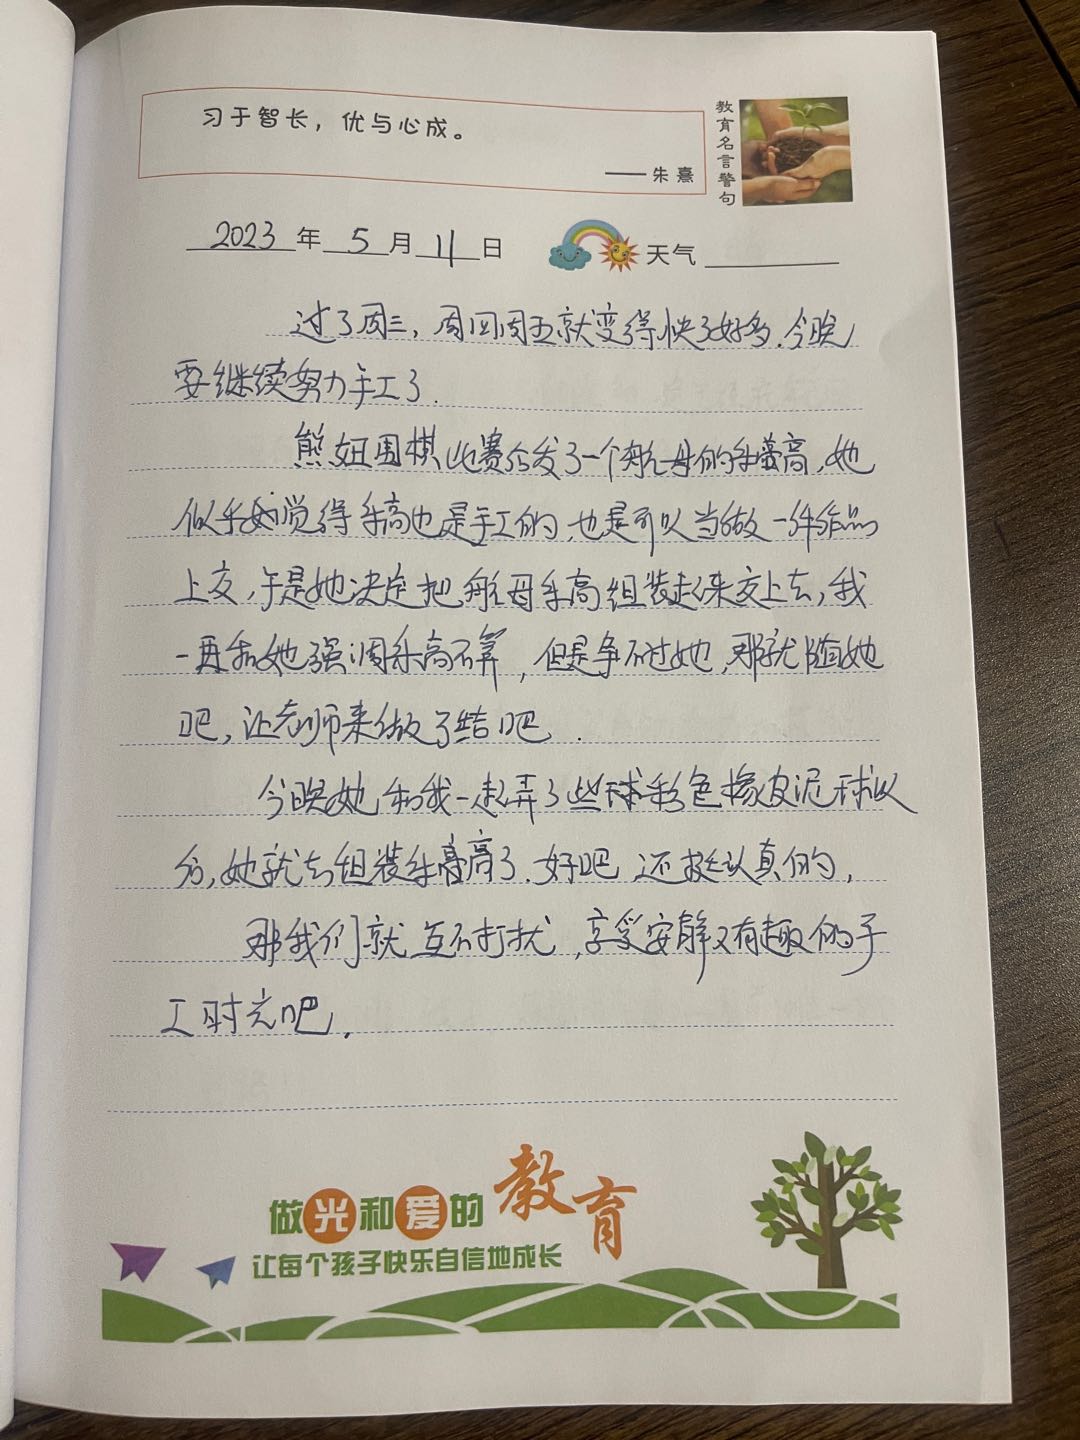 习于智长，优与心成。
——朱熹
教育名言警句
2023年5月11日 天气
过了周三，周四周五就变得快了好多.今晚
要继续努力手工了.
熊妞围棋比赛后发了一个航母的乐高,她
似乎觉得乐高也是手工的,也是可以当做一件作品
上交,于是她决定把航母乐高组装起来交上去,我
一再和她强调乐高不算,但是争不过她,那就随她
吧,让老师来做了结吧.
今晚她和我一起弄了些球彩色橡皮泥球以
后,她就去组装乐高了.好吧,还挺认真的,
那我们就互不打扰,享受安静又有趣的手
工时光吧.
做光和爱的教育
让每个孩子快乐自信地成长